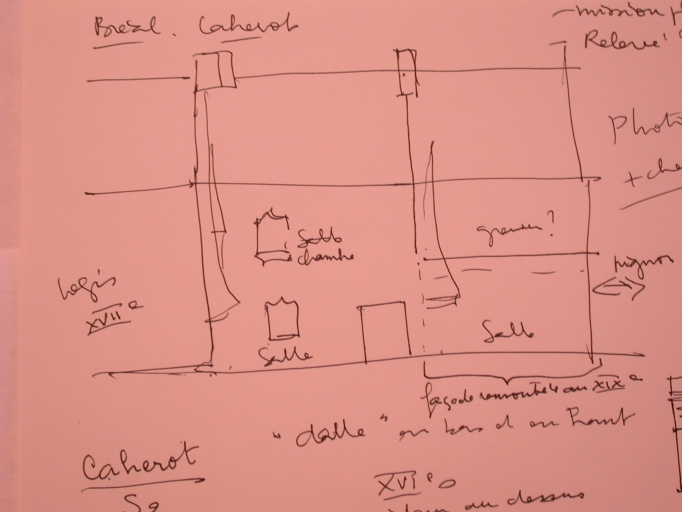 Brézal. Caherot
- mission
Relevé
Photo
+
grenier?
Salle
chambre
pignon
Logis
XVIIe
Salle
Salle
façade remontée au XIXe
"dalle" en bas et en haut
Caherot
XVIe
au dessus